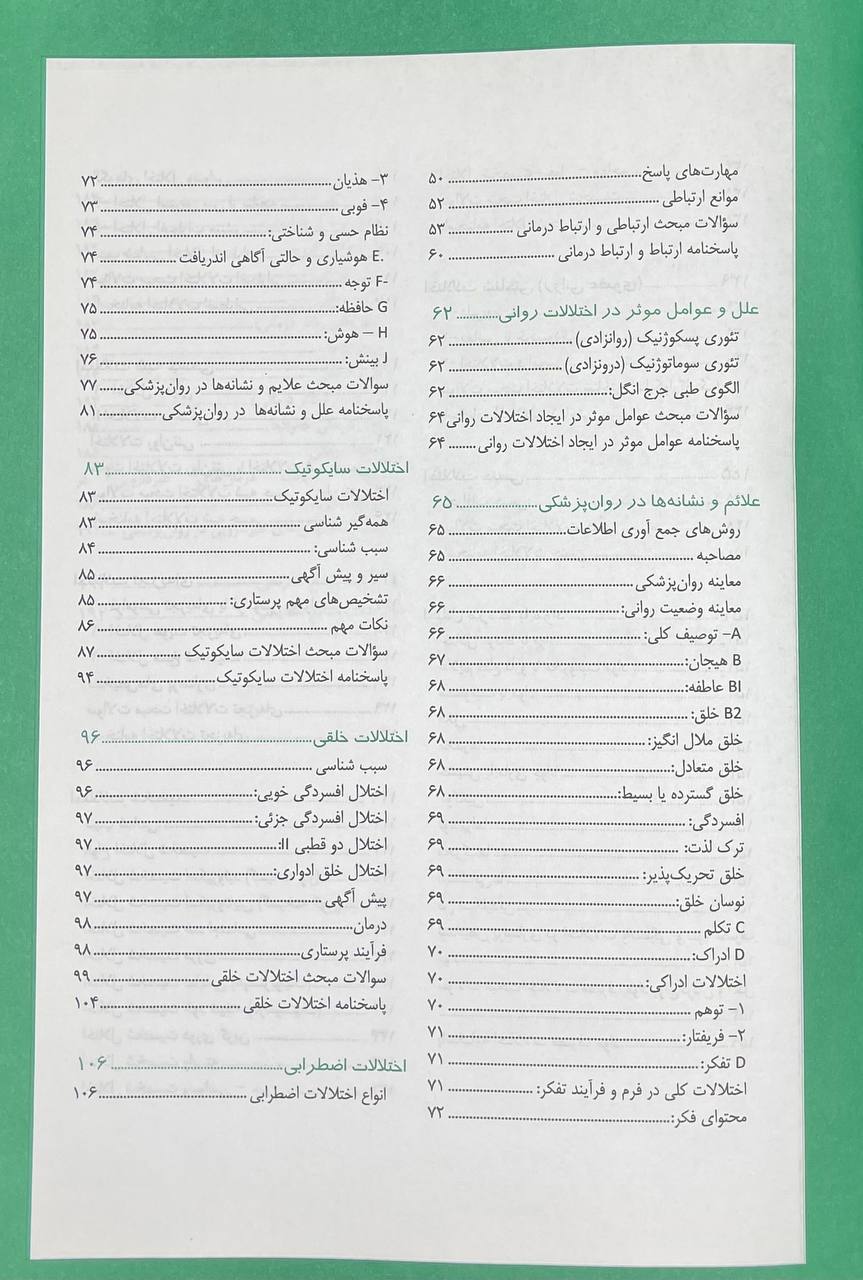 مهارت‌های پاسخ ........ ۵۰
موانع ارتباطی ........ ۵۲
سؤالات مبحث ارتباطی و ارتباط درمانی ........ ۵۳
پاسخنامه ارتباط و ارتباط درمانی ........ ۶۰
علل و عوامل موثر در اختلالات روانی ........ ۶۲
تئوری پسکوژنیک (روانزادی) ........ ۶۲
تئوری سوماتوژنیک (درونزادی) ........ ۶۲
الگوی طبی جرج انگل: ........ ۶۲
سؤالات مبحث عوامل موثر در ایجاد اختلالات روانی ۶۴
پاسخنامه عوامل موثر در ایجاد اختلالات روانی ........ ۶۴
علائم و نشانه‌ها در روان‌پزشکی ........ ۶۵
روش‌های جمع آوری اطلاعات ........ ۶۵
مصاحبه ........ ۶۵
معاینه روان‌پزشکی ........ ۶۶
معاینه وضعیت روانی: ........ ۶۶
A- توصیف کلی: ........ ۶۶
B هیجان: ........ ۶۷
BI عاطفه: ........ ۶۸
B2 خلق: ........ ۶۸
خلق ملال انگیز: ........ ۶۸
خلق متعادل: ........ ۶۸
خلق گسترده یا بسیط: ........ ۶۸
افسردگی: ........ ۶۹
ترک لذت: ........ ۶۹
خلق تحریک‌پذیر: ........ ۶۹
نوسان خلق: ........ ۶۹
C تکلم ........ ۶۹
D ادراک: ........ ۷۰
اختلالات ادراکی: ........ ۷۰
۱- توهم ........ ۷۰
۲- فریفتار: ........ ۷۱
D تفکر: ........ ۷۱
اختلالات کلی در فرم و فرآیند تفکر: ........ ۷۱
محتوای فکر: ........ ۷۲
۳- هذیان ........ ۷۲
۴- فوبی ........ ۷۳
نظام حسی و شناختی: ........ ۷۴
.E هوشیاری و حالتی آگاهی اندریافت ........ ۷۴
F- توجه ........ ۷۴
G حافظه: ........ ۷۵
H – هوش: ........ ۷۵
J بینش: ........ ۷۶
سوالات مبحث علایم و نشانه‌ها در روان‌پزشکی ........ ۷۷
پاسخنامه علل و نشانه‌ها در روان‌پزشکی ........ ۸۱
اختلالات سایکوتیک ........ ۸۳
اختلالات سایکوتیک ........ ۸۳
همه‌گیر شناسی ........ ۸۳
سبب شناسی: ........ ۸۴
سیر و پیش آگهی ........ ۸۵
تشخیص‌های مهم پرستاری: ........ ۸۵
نکات مهم ........ ۸۶
سؤالات مبحث اختلالات سایکوتیک ........ ۸۷
پاسخنامه اختلالات سایکوتیک ........ ۹۴
اختلالات خلقی ........ ۹۶
سبب شناسی ........ ۹۶
اختلال افسردگی خویی: ........ ۹۶
اختلال افسردگی جزئی: ........ ۹۷
اختلال دو قطبی II: ........ ۹۷
اختلال خلق ادواری: ........ ۹۷
پیش آگهی ........ ۹۷
درمان ........ ۹۸
فرآیند پرستاری ........ ۹۸
سوالات مبحث اختلالات خلقی ........ ۹۹
پاسخنامه اختلالات خلقی ........ ۱۰۴
اختلالات اضطرابی ........ ۱۰۶
انواع اختلالات اضطرابی ........ ۱۰۶